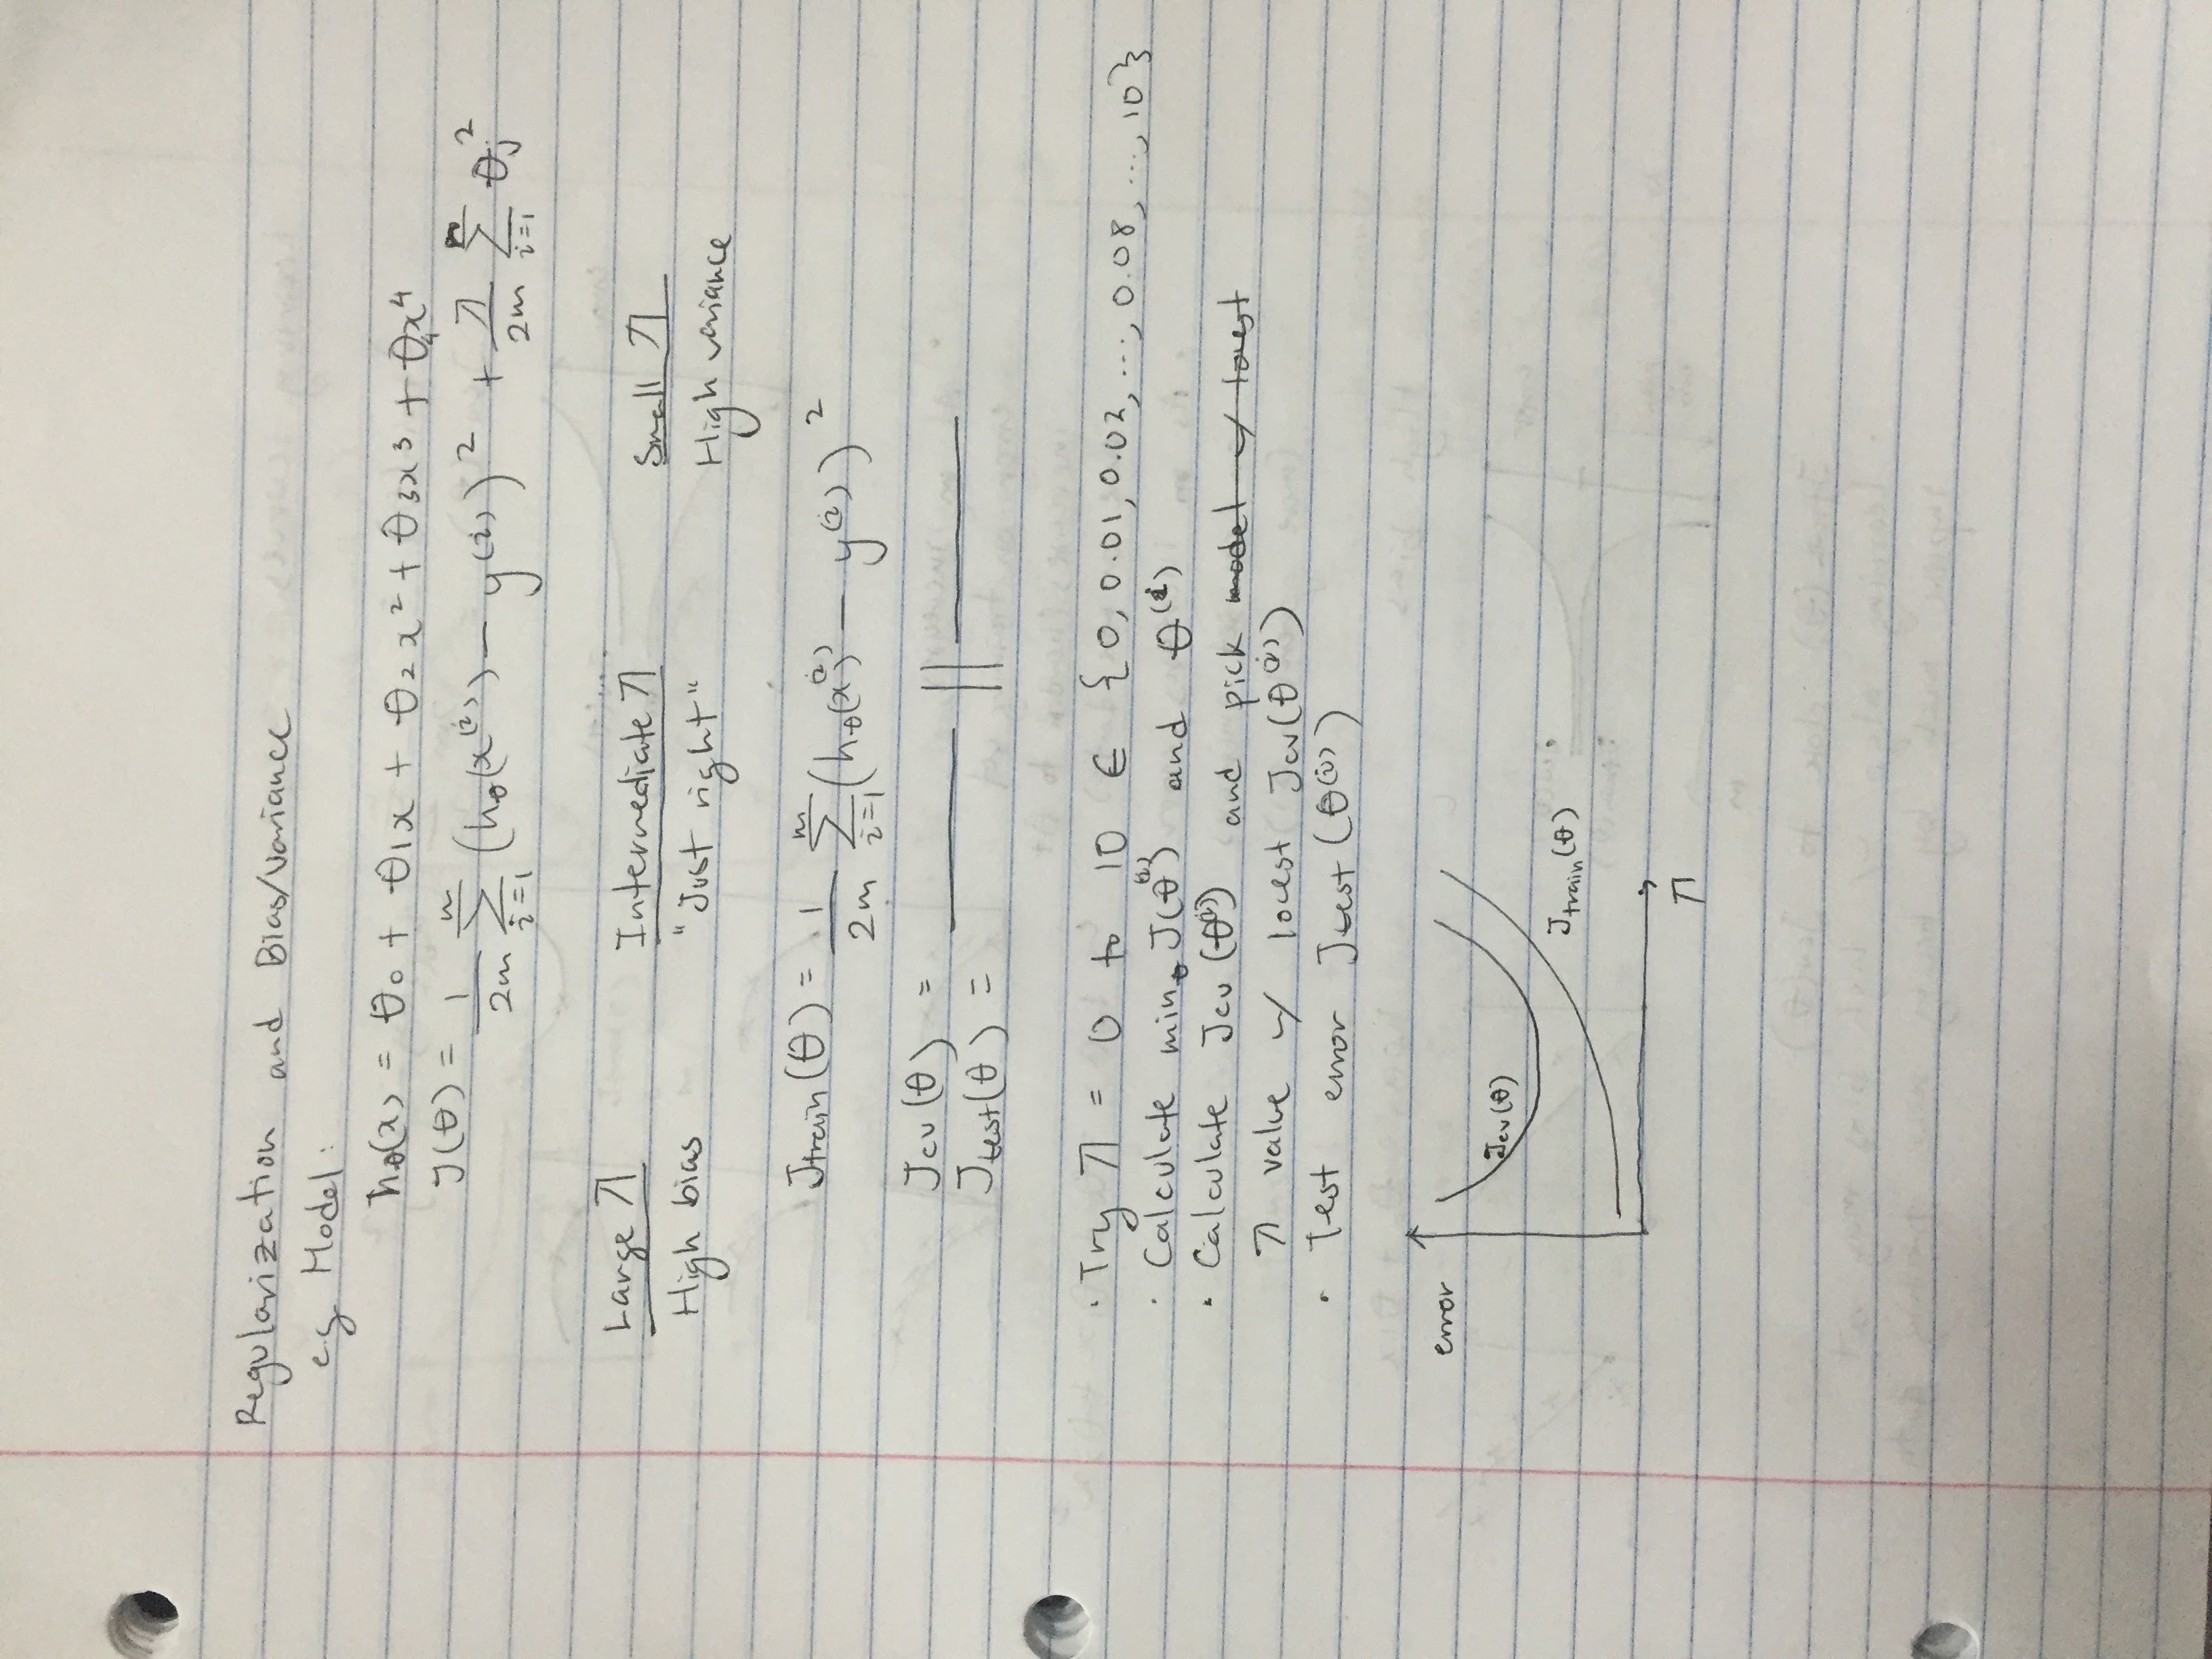 Regularization and Bias/Variance
e.g Model:
hθ(x) = θ₀ + θ₁x + θ₂x² + θ₃x³ + θ₄x⁴
J(θ) = 1/2m Σ_{i=1}^{m} (hθ(x^(i)) − y^(i))² + λ/2m Σ_{i=1}^{m} θⱼ²
Large λ Intermediate λ Small λ
High bias "Just right" High variance
Jtrain(θ) = 1/2m Σ_{i=1}^{m} (hθ(x^(i)) − y^(i))²
Jcv(θ) = —— || ——
Jtest(θ) =
· Try λ = 0 to 10 ∈ {0, 0.01, 0.02, ..., 0.08, ..., 10}
· Calculate minθ J(θ^(i)) and θ^(i)
· Calculate Jcv(θ^(i)) and pick model w/ lowest
λ value w/ lowest Jcv(θ^(i))
· Test error Jtest(θ^(i))
error
Jcv(θ)
Jtrain(θ)
λ